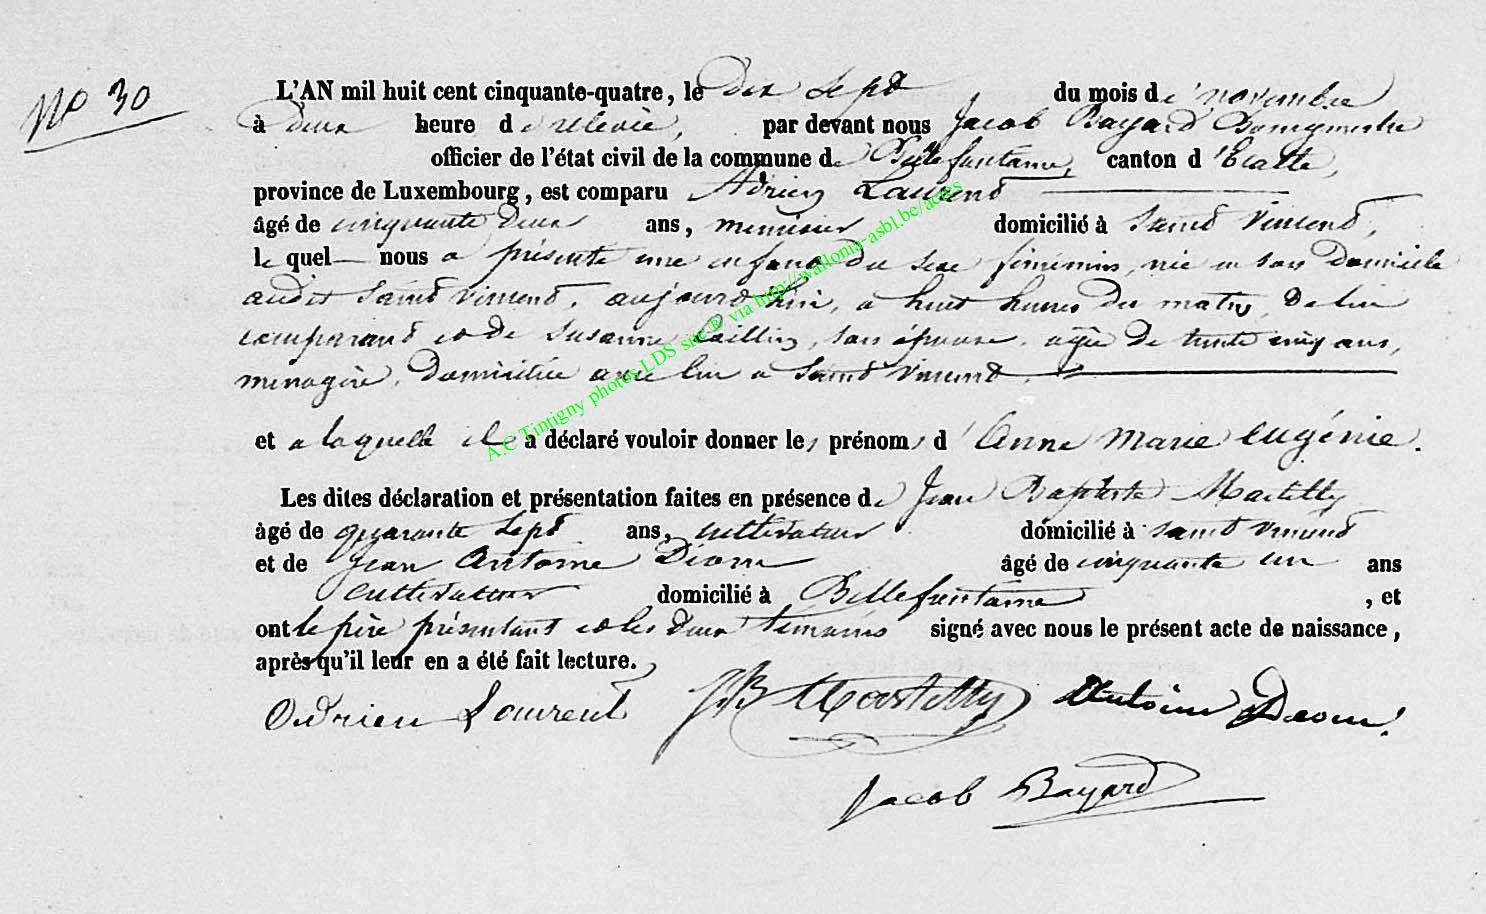 No 30
L'AN mil huit cent cinquante-quatre, le Dix Sept du mois de novembre
à Deux heure de relevée, par devant nous Jacob Bayard Bourgmestre
officier de l'état civil de la commune de Bellefontaine, canton d'Etalle,
province de Luxembourg, est comparu Adrien Laurent
âgé de cinquante Deux ans, menuisier domicilié à Saint Vincent,
le quel nous a présenté une enfant Du sexe féminin, née en son Domicile
audit Saint Vincent, aujourd'hui, a huit heures Du matin, De lui
comparant et de Susanne, son épouse, agée De trente cinq ans,
menagère, Domiciliée avec lui a Saint Vincent.
et a laquelle il a déclaré vouloir donner les prénoms d'Anne Marie Eugénie.
Les dites déclaration et présentation faites en présence de Jean Baptiste Mastelly
âgé de quarante Sept ans, cultivateur domicilié à Saint Vincent
et de Jean Antoine Diom âgé de cinquante un ans
cultivateur domicilié à Bellefontaine, et
ont le père présentant et les deux témoins signé avec nous le présent acte de naissance,
après qu'il leur en a été fait lecture.
Adrien Laurent JB Mastelly Antoine
Jacob Bayard
A.C Tintigny photos LDS site® via http://wallonia-asbl.be/actes